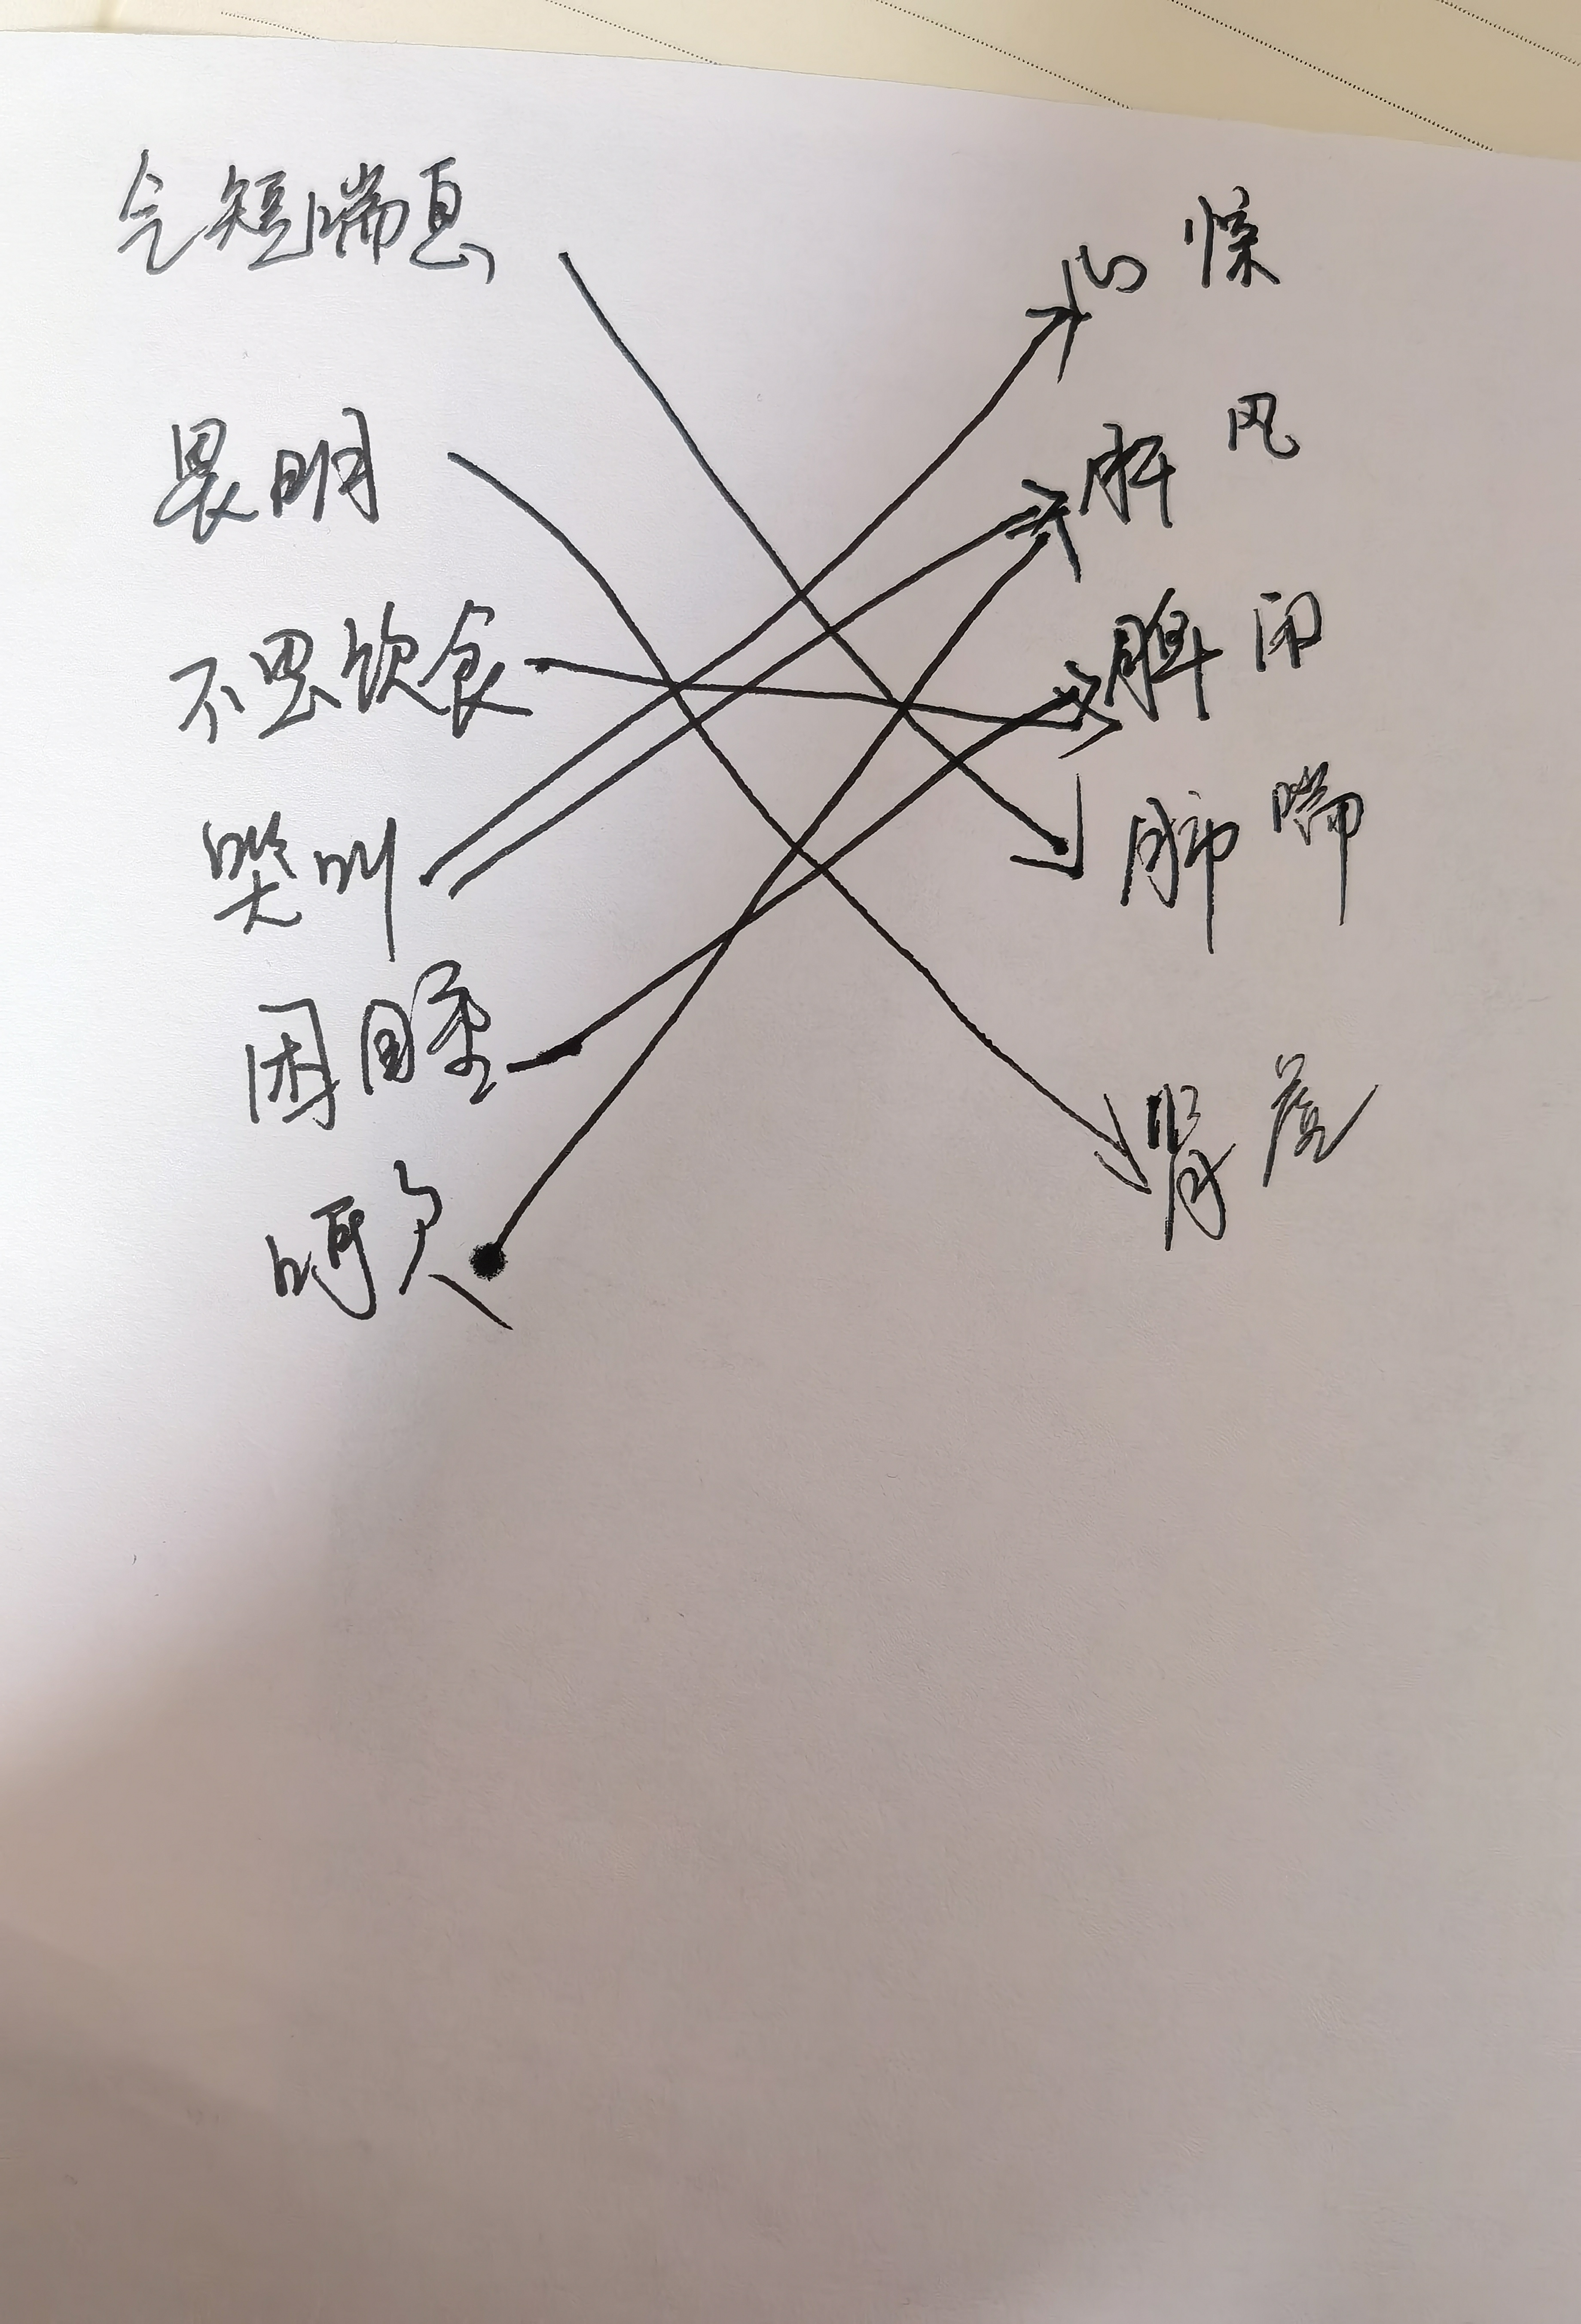 气短喘息
心惊
畏明
肝风
不思饮食
脾困
哭叫
肺喘
困睡
肾虚
呵欠